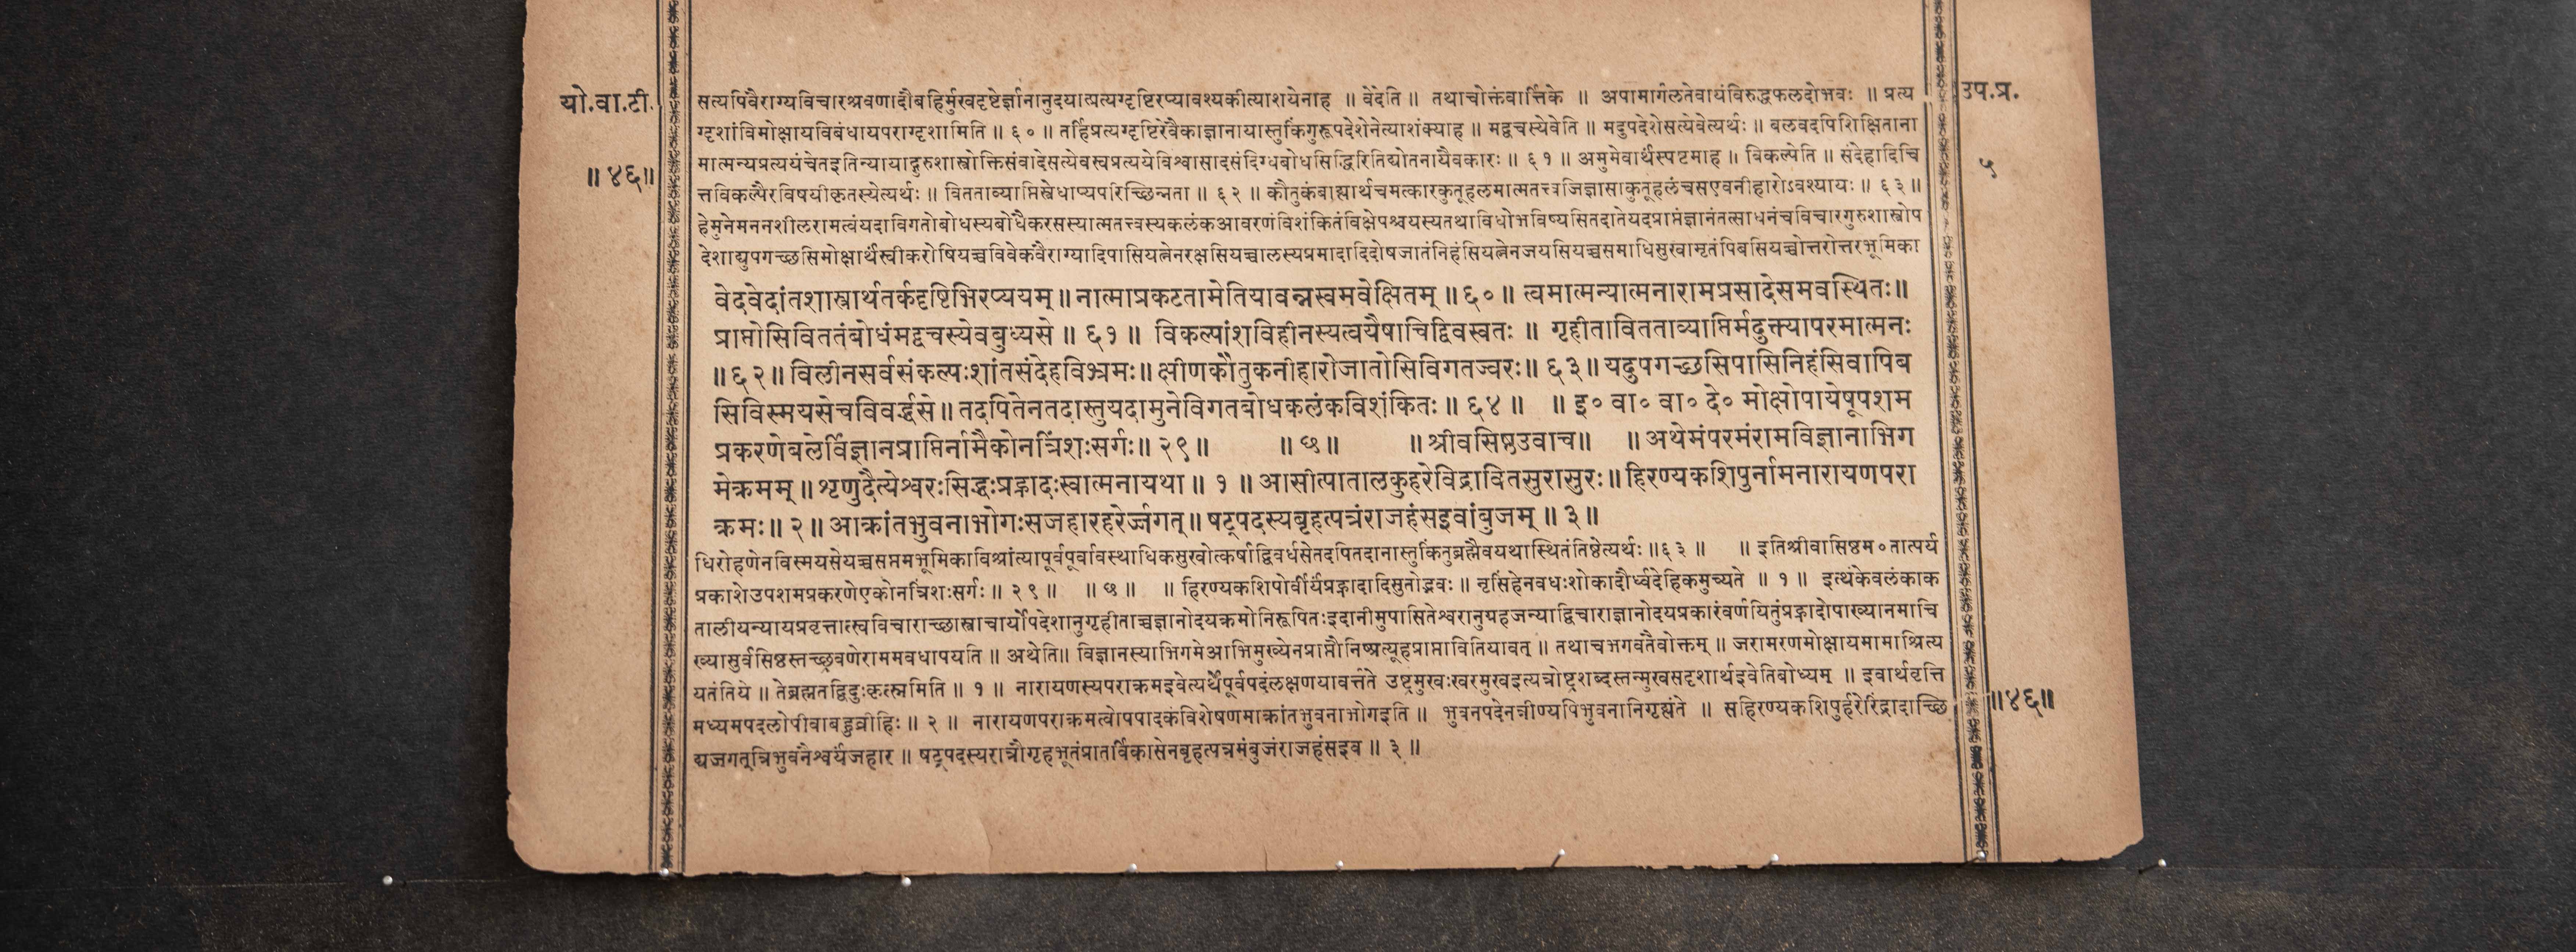 यो.वा.टी.
॥४६॥
सत्यपिवैराग्यविचारश्रवणादौबहिर्मुखदृष्टेर्ज्ञानानुदयात्प्रत्यग्दृष्टिरप्यावश्यकीत्याशयेनाह ॥ वेदेति ॥ तथाचोक्तंवार्त्तिके ॥ अपामार्गलतेवायंविरुद्धफलदोभवः ॥ प्रत्य
ग्दृशांविमोक्षायविबंधायपराग्दृशामिति ॥ ६० ॥ तर्हिप्रत्यग्दृष्टिरेवैकाज्ञानायास्तुकिंगुरूपदेशेनेत्याशंक्याह ॥ मद्वचस्येवेति ॥ मदुपदेशेसत्येवेत्यर्थः ॥ बलवदपिशिक्षिताना
मात्मन्यप्रत्ययंचेतइतिन्यायाद्गुरुशास्त्रोक्तिसंवादेसत्येवस्वप्रत्ययेविश्वासादसंदिग्धबोधसिद्धिरितिद्योतनायैवकारः ॥ ६१ ॥ अमुमेवार्थंस्पष्टमाह ॥ विकल्पेति ॥ संदेहादिचि
त्तविकल्पैरविषयीकृतस्येत्यर्थः ॥ वितताव्याप्तिस्त्रेधाप्यपरिच्छिन्नता ॥ ६२ ॥ कौतुकंबाह्यार्थचमत्कारकुतूहलमात्मतत्त्वजिज्ञासाकुतूहलंचसएवनीहारोऽवश्यायः ॥ ६३ ॥
हेमुनेमननशीलरामत्वंयदाविगतोबोधस्यबोधैकरसस्यात्मतत्त्वस्यकलंकआवरणंविशंकितंविक्षेपश्चयस्यतथाविधोभविष्यसितदातेयदप्राप्तंज्ञानंतत्साधनंचविचारगुरुशास्त्रोप
देशाद्युपगच्छसिमोक्षार्थंस्वीकरोषियच्चविवेकवैराग्यादिपासियत्नेनरक्षसियच्चालस्यप्रमादादिदोषजातंनिहंसियत्नेनजयसियच्चसमाधिसुखामृतंपिबसियच्चोत्तरोत्तरभूमिका
वेदवेदांतशास्त्रार्थतर्कदृष्टिभिरप्ययम् ॥ नात्माप्रकटतामेतियावन्नस्वमवेक्षितम् ॥ ६० ॥ त्वमात्मन्यात्मनारामप्रसादेसमवस्थितः ॥
प्राप्तोसिविततंबोधंमद्वचस्येवबुध्यसे ॥ ६१ ॥ विकल्पांशविहीनस्यत्वयैषाचिद्विवस्वतः ॥ गृहीतावितताव्याप्तिर्मदुक्त्यापरमात्मनः
॥ ६२ ॥ विलीनसर्वसंकल्पःशांतसंदेहविभ्रमः ॥ क्षीणकौतुकनीहारोजातोसिविगतज्वरः ॥ ६३ ॥ यदुपगच्छसिपासिनिहंसिवापिब
सिविस्मयसेचविवर्द्धसे ॥ तदपितेनतदास्तुयदामुनेविगतबोधकलंकविशंकितः ॥ ६४ ॥ ॥ इ० वा० वा० दे० मोक्षोपायेषूपशम
प्रकरणेबलेर्विज्ञानप्राप्तिर्नामैकोनत्रिंशःसर्गः ॥ २९ ॥ ॥ छ ॥ ॥ श्रीवसिष्ठउवाच ॥ ॥ अथेमंपरमंरामविज्ञानाभिग
मेक्रमम् ॥ शृणुदैत्येश्वरःसिद्धःप्रह्लादःस्वात्मनायथा ॥ १ ॥ आसीत्पातालकुहरेविद्रावितसुरासुरः ॥ हिरण्यकशिपुर्नामनारायणपरा
क्रमः ॥ २ ॥ आक्रांतभुवनाभोगःसजहारहरेर्ज्जगत् ॥ षट्पदस्यबृहत्पत्रंराजहंसइवांबुजम् ॥ ३ ॥
धिरोहणेनविस्मयसेयच्चसप्तमभूमिकाविश्रांत्यापूर्वपूर्वावस्थाधिकसुखोत्कर्षाद्विवर्धसेतदपितदानास्तुकिंतुब्रह्मैवयथास्थितंतिष्ठेत्यर्थः ॥ ६३ ॥ ॥ इतिश्रीवासिष्ठम०तात्पर्य
प्रकाशेउपशमप्रकरणेएकोनत्रिंशःसर्गः ॥ २९ ॥ ॥ छ ॥ ॥ हिरण्यकशिपोर्वीर्यंप्रह्लादादिसुतोद्भवः ॥ नृसिंहेनवधःशोकादौर्ध्वदेहिकमुच्यते ॥ १ ॥ इत्थंकेवलंकाक
तालीयन्यायप्रवृत्तात्स्वविचाराच्छास्त्राचार्योपदेशानुगृहीताच्चज्ञानोदयक्रमोनिरूपितःइदानीमुपासितेश्वरानुग्रहजन्याद्विचाराज्ञानोदयप्रकारंवर्णयितुंप्रह्लादोपाख्यानमाचि
ख्यासुर्वसिष्ठस्तच्छ्रवणेराममवधापयति ॥ अथेति ॥ विज्ञानस्याभिगमेआभिमुख्येनप्राप्तौनिष्प्रत्यूहप्राप्तावितियावत् ॥ तथाचभगवतैवोक्तम् ॥ जरामरणमोक्षायमामाश्रित्य
यतंतिये ॥ तेब्रह्मतद्विदुःकृत्स्नमिति ॥ १ ॥ नारायणस्यपराक्रमइवेत्यर्थेपूर्वपदंलक्षणयावर्त्तते उष्ट्रमुखःखरमुखइत्यत्रोष्ट्रशब्दस्तन्मुखसदृशार्थइवेतिबोध्यम् ॥ इवार्थवृत्ति
मध्यमपदलोपीवाबहुव्रीहिः ॥ २ ॥ नारायणपराक्रमत्वोपपादकंविशेषणमाक्रांतभुवनाभोगइति ॥ भुवनपदेनत्रीण्यपिभुवनानिगृह्यंते ॥ सहिरण्यकशिपुर्हरेरिंद्रादाच्छि
द्यजगत्त्रिभुवनैश्वर्यंजहार ॥ षट्पदस्यरात्रौगृहभूतंप्रातर्विकासेनबृहत्पत्रमंबुजंराजहंसइव ॥ ३ ॥
उप.प्र.
५
॥४६॥